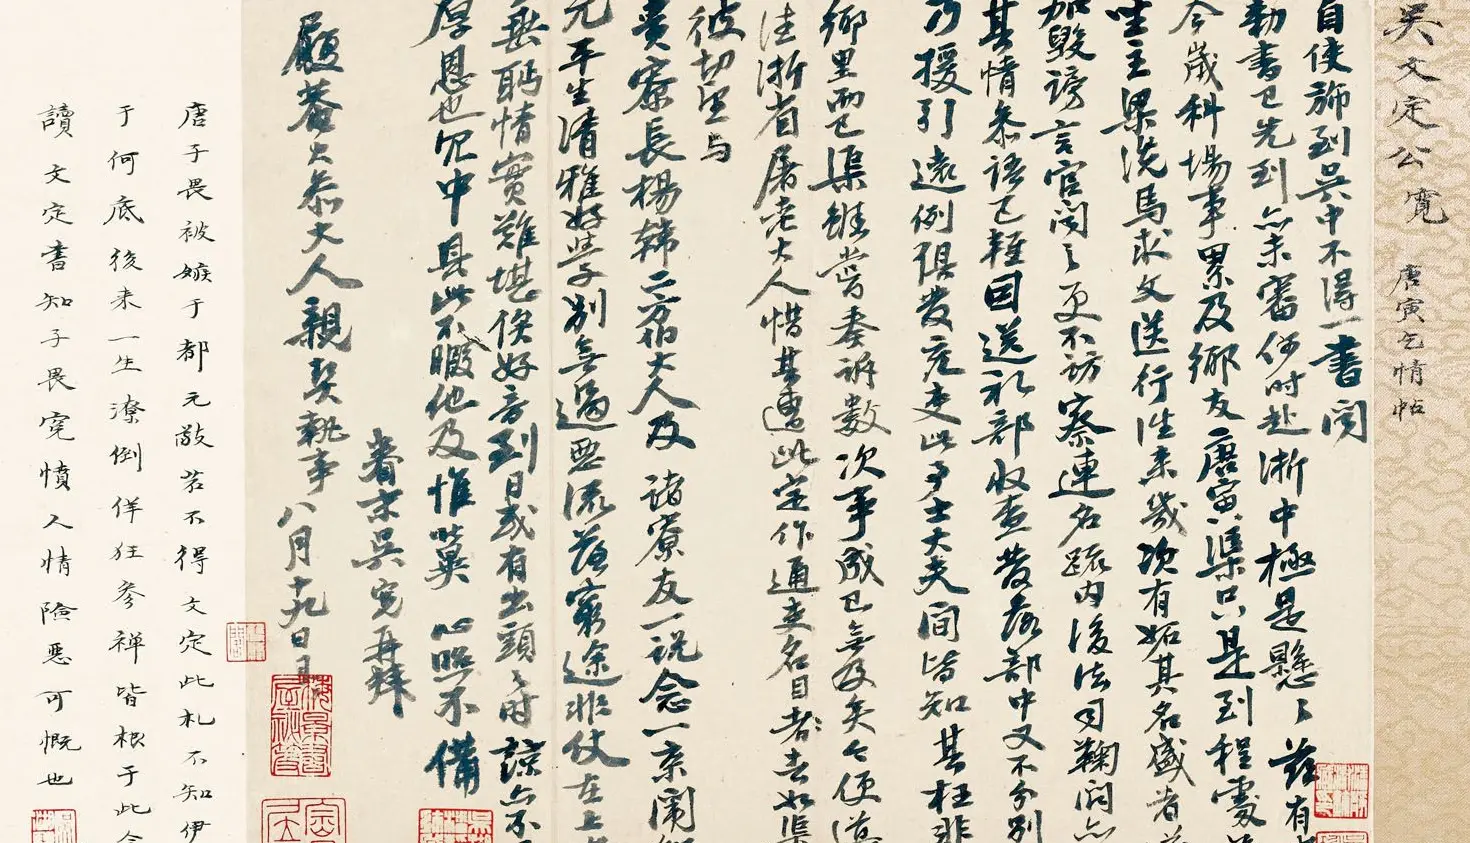 吳文定公寬 唐寅乞情帖
自使旆到吳中不得一書聞
勅書已先到亦未審何時赴浙中極是懸懸茲有
今歲科場事累及鄉友唐寅渠只是到程處
坐主梁洗馬求文送行往來幾次有妬其名盛者
加毀謗言官聞之更不訪察連名疏內後法司鞫問亦
其情參語已輕因送禮部收查發落部中又不分別
乃援引遠例俱發充吏此事士大夫間皆知其枉非
鄉里而已渠雖嘗奏訴數次事成已無及矣今便道
往浙省屠老大人惜其遭此定作通吏名目者去如渠
彼切望與
貴寮長楊韓二方伯大人及諸寮友一說念一京闈
元平生清雅好學別無過惡流落窮途非仗在上
無聊情實難堪俟好音到日或有出頭之時諒亦不
厚恩也冗中具此不暇他及惟冀心照不備
眷末吳寬再拜
履菴大參大人親契執事八月十九日具
唐子畏被嫉于都元敬若不得文定此札不知伊
于何底後來一生潦倒佯狂參禪皆根于此今
讀文定書知子畏寃憤人情險惡可慨也